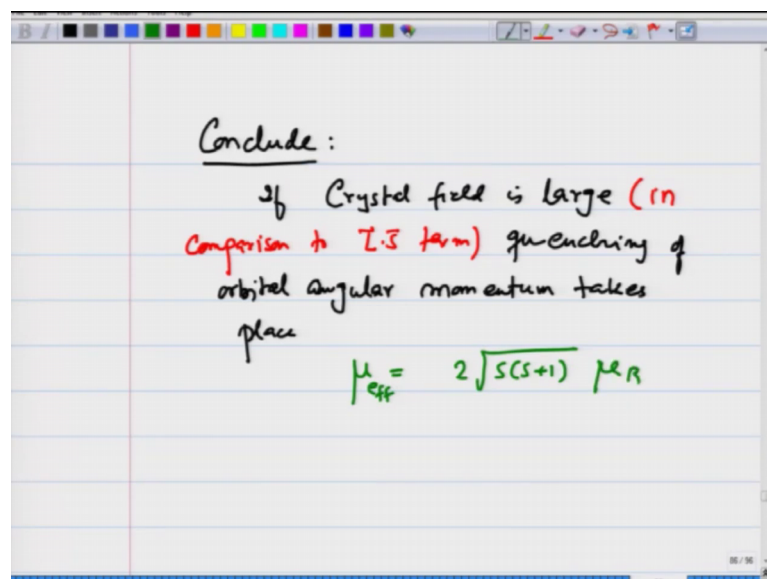 Conclude :
If Crystal field is large (in
comparison to L.S term) quenching of
orbital angular momentum takes
place
μeff = 2√S(S+1) μB
86 / 96